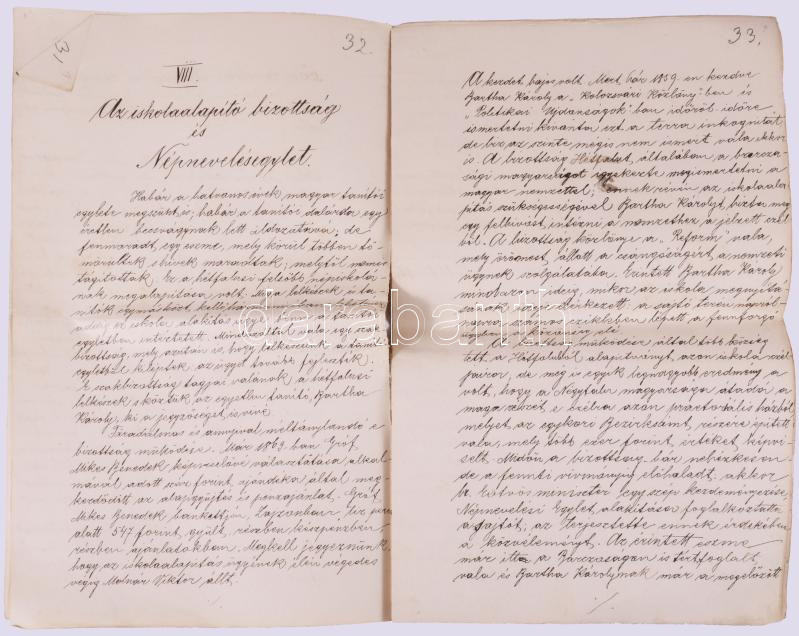 32.
VIII.
Az iskolaalapitó bizottság
és
Népnevelésegylet.
Habár a hatvanas évek magyar tanítói
egylete megszünt is; habár a tanítói dalárda egy
éretlen becsvágynak lett áldozatává; de
fenmaradt egy eszme, mely körül többen tö-
mörültek s hívek maradtak; melytől nem
tágitottak. Ez a hétfalusi felsőbb népiskolá-
nak megalapitása volt. Maga lelkészek s ta-
nitók
addig az iskola alakitás ügye
egyletben intéztetett. Mindazáltal vala egy szak
bizottság, mely azután is, hogy lelkészeink a tanitói
egyletből kiléptek, az ügyet tovább fejlesztők.
E szakbizottság tagjai valának a hétfalusi
lelkészek s köztük az egyetlen tanitó, Bartha
Károly, ki a jegyzőséget is vivé.
Fáradalmas és annyival méltánylandó e
bizottság működése. Már 1869-ban Gróf
Mikes Benedek képviselővé választatása alkal-
mával adott száz forint ajándéka által meg-
kezdődött az alapgyűjtés és pénzajánlat. Gróf
Mikes Benedek bankettjén, Zajzonban tiz percz
alatt 547 forint gyült, részben készpénzben,
részben ajánlatokban. Megkell jegyeznünk,
hogy az iskolaalapitás ügyének élén végedes
végig Molnár Viktor állt.
33.
A kezdet bajos volt. Mert, bár 1859-en kezdve
Bartha Károly a „Kolozsvári Közlöny"-ben és
„Politikai Ujdonságok"-ban időről-időre
ismertetni kivánta ezt a terra inkognitát
de biz az szinte mégis nem ismert vala ekkor
is. A bizottság Hétfalut, általában a barcza-
sági magyarságot igyekezte megismertetni a
magyar nemzettel; ennek révén az iskolaala-
pitás szükségességével Bartha Károlyt bizta meg
egy felhivást intézni a nemzethez a jelzett czél-
ból. A bizottság közlönye a „Reform" vala,
mely örömest állott a csángóságért, a nemzeti
ügynek szolgálatába. Érintett Bartha Károly
mindazon ideig, mikor az iskola megnyitá-
sának bekövetkezett a sajtó terén napról-
napra számos czikkben lépett a fennforgó
ügyben a közönség elé.
A bizottság működése által több község
tett a Hétfaluból alapitványt azon iskola szék
javára, de még is egyik legnagyobb eredmény a
volt, hogy a Négyfalu magyarsága átadá a
maga részét e czélra azon praetoriális házból
melyet az egykori Bezirksamt részére épitett
vala, mely több ezer forint értéket képvi-
selt. Midőn a bizottság bár nehézkesen
de a fennti vivmányig előhaladt, akkor
b. Eötvös miniszter egy szép kezdeményezése,
Népnevelési Egylet alakitása foglalkoztatta
a sajtót; az terjesztette ennek érdekében
a közvéleményt. Az érintett eszme
már itt a Barczaságon is tért foglalt
vala és Bartha Károlynak már a megelőzött
darabanth